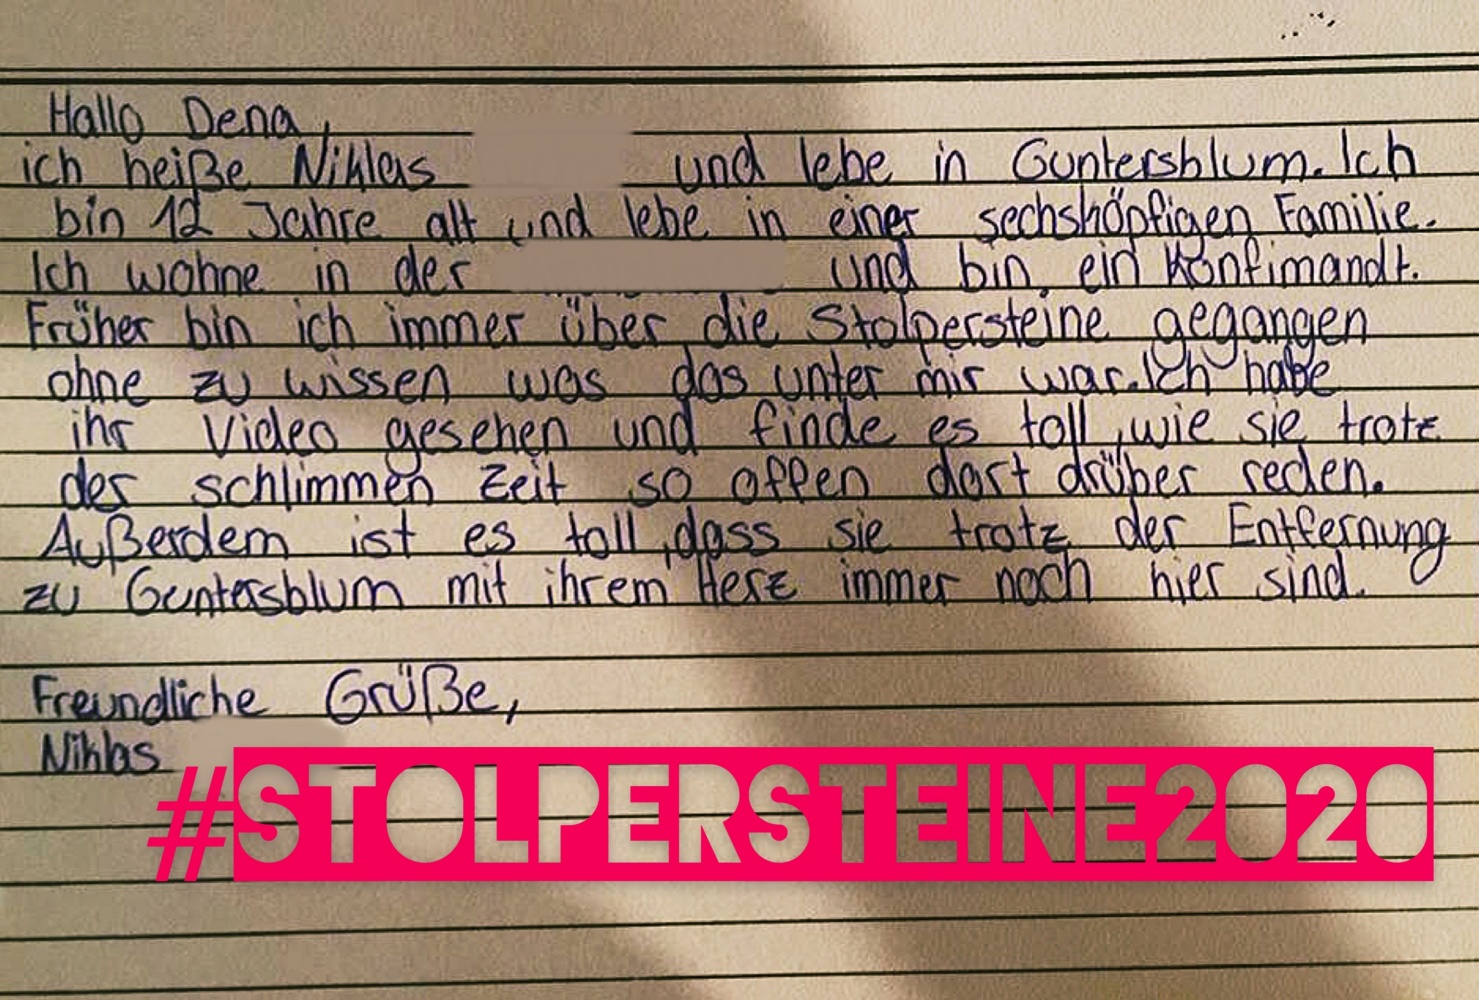 Hallo Dena,
ich heiße Niklas und lebe in Guntersblum. Ich
bin 12 Jahre alt und lebe in einer sechsköpfigen Familie.
Ich wohne in der und bin ein Konfimandt.
Früher bin ich immer über die Stolpersteine gegangen
ohne zu wissen was das unter mir war. Ich habe
ihr Video gesehen und finde es toll, wie sie trotz
der schlimmen Zeit so offen dort drüber reden.
Außerdem ist es toll, dass sie trotz der Entfernung
zu Guntersblum mit ihrem Herz immer noch hier sind.
Freundliche Grüße,
Niklas
#STOLPERSTEINE2020